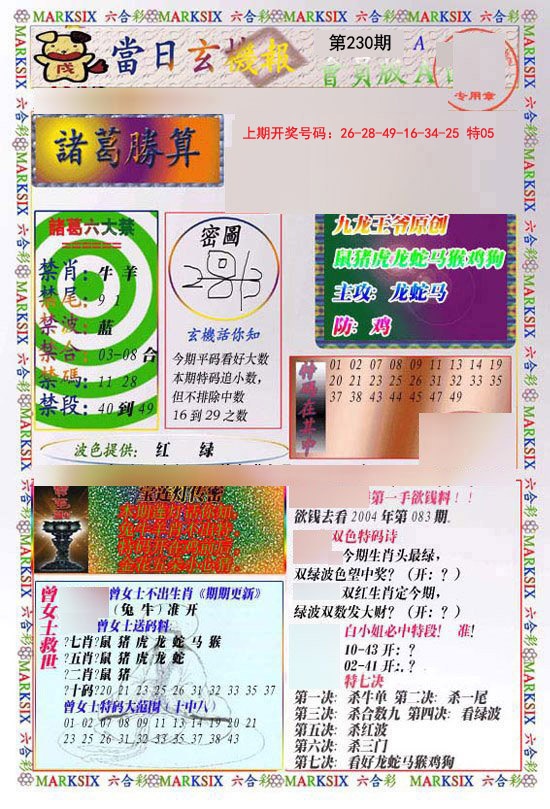 MARKSIX 六合彩 MARKSIX 六合彩 MARKSIX 六合彩 MARKSIX 六合彩
當日玄機報
第230期
A
會員版A
专用章
諸葛勝算
上期开奖号码：26-28-49-16-34-25 特05
諸葛六大禁
禁肖：牛 羊
禁尾：9 1
禁波：蓝
禁合：03-08 合
禁碼：11 28
禁段：40 到 49
密圖
玄機話你知
今期平码看好大数
本期特码追小数，
但不排除中数
16 到 29 之数
九龙王爷原创
鼠猪虎龙蛇马猴鸡狗
主攻：龙蛇马
防：鸡
特碼在其中
01 02 07 08 09 11 13 14 19
20 21 23 25 26 31 32 33 35
37 38 43 44 45 47 49
波色提供： 红 绿
宝连灯传密
第一手欲钱料！！
欲钱去看 2004 年第 083 期.
双色特码诗
今期生肖头最绿，
双绿波色望中奖？（开：？）
双红生肖定今期，
绿波双数发大财？（开：？）
白小姐必中特段！ 准！
10-43 开：？
02-41 开：.？
特七决
第一决：杀牛单 第二决：杀一尾
第三决：杀合数九 第四决：看绿波
第五决：杀红波
第六决：杀三门
第七决：看好龙蛇马猴鸡狗
曾女士救世
曾女士不出生肖《期期更新》
（兔 牛）准 开
曾女士送码料:
?七肖?鼠 猪 虎 龙 蛇 马 猴
?五肖?鼠 猪 虎 龙 蛇
?二肖?鼠 猪
?十码?20 21 23 25 26 31 32 33 35 37
曾女士特码大范围（十中八）
01 02 07 08 09 11 13 14 19 20 21
23 25 26 31 32 33 35 37 38 43
MARKSIX 六合彩 MARKSIX 六合彩 MARKSIX 六合彩 MARKSIX 六合彩